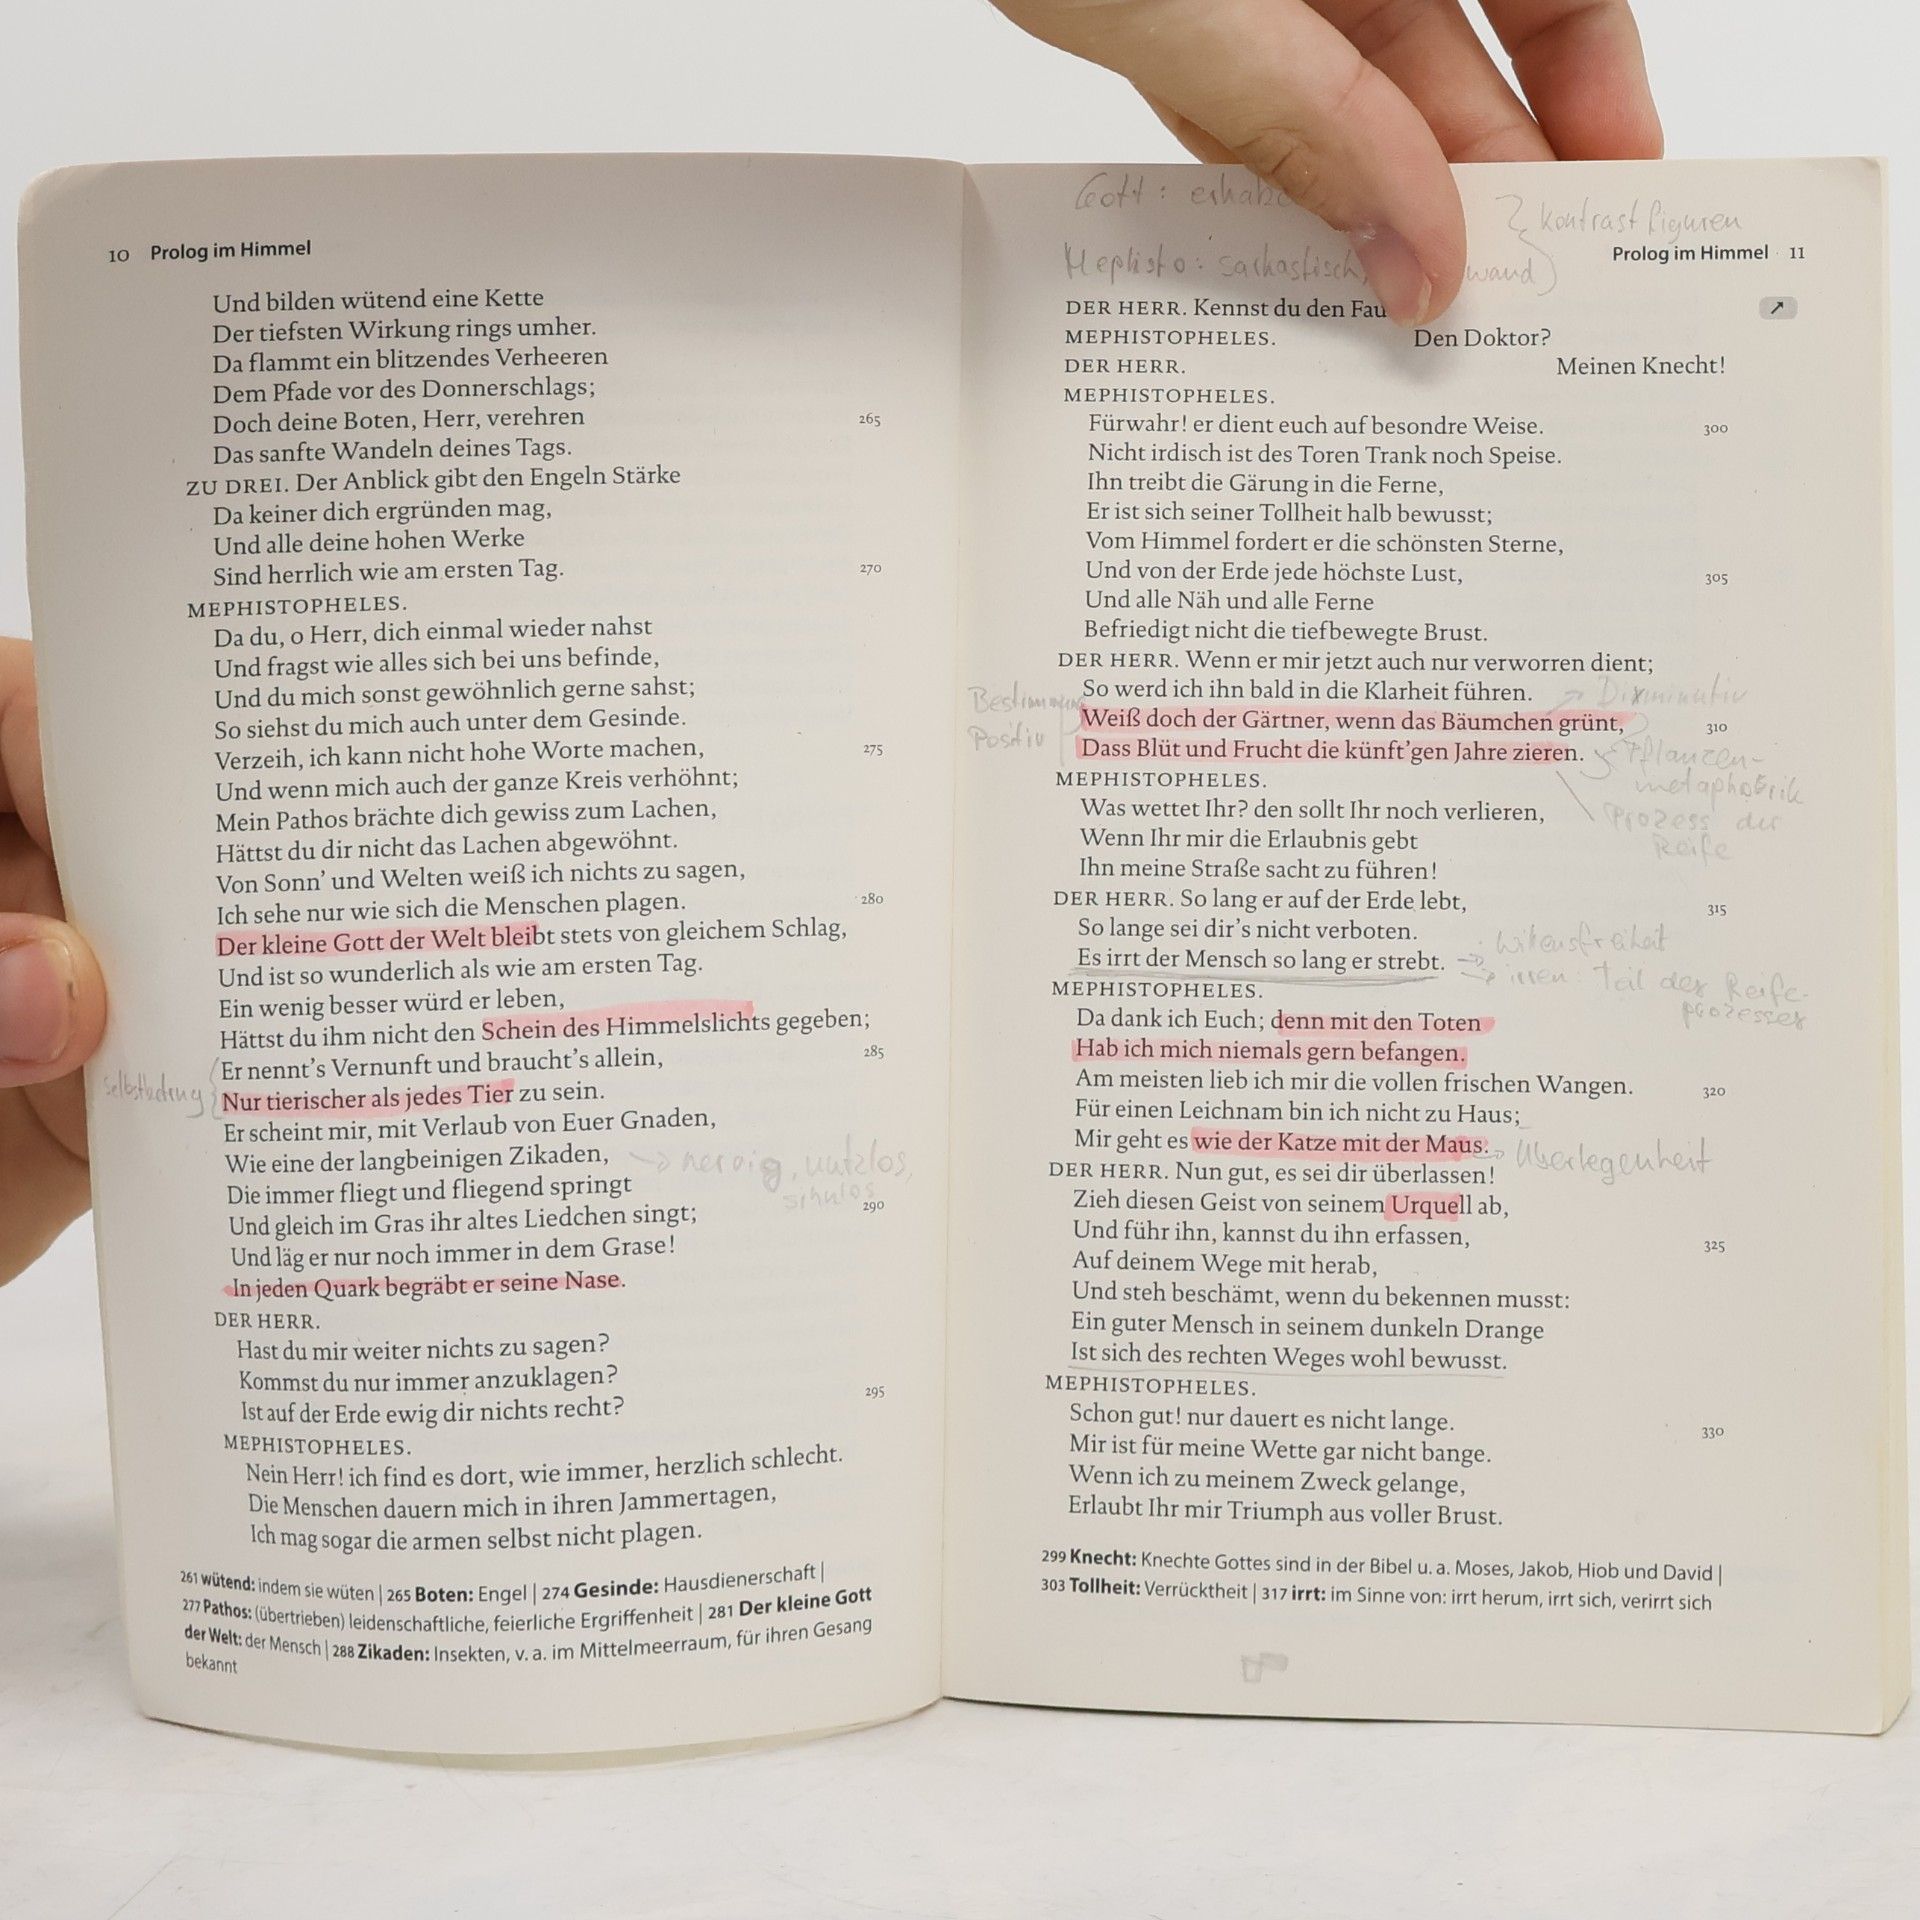 10 Prolog im Himmel
Und bilden wütend eine Kette
Der tiefsten Wirkung rings umher.
Da flammt ein blitzendes Verheeren
Dem Pfade vor des Donnerschlags;
Doch deine Boten, Herr, verehren 265
Das sanfte Wandeln deines Tags.
ZU DREI. Der Anblick gibt den Engeln Stärke
Da keiner dich ergründen mag,
Und alle deine hohen Werke
Sind herrlich wie am ersten Tag. 270
MEPHISTOPHELES.
Da du, o Herr, dich einmal wieder nahst
Und fragst wie alles sich bei uns befinde,
Und du mich sonst gewöhnlich gerne sahst;
So siehst du mich auch unter dem Gesinde.
Verzeih, ich kann nicht hohe Worte machen, 275
Und wenn mich auch der ganze Kreis verhöhnt;
Mein Pathos brächte dich gewiss zum Lachen,
Hättst du dir nicht das Lachen abgewöhnt.
Von Sonn’ und Welten weiß ich nichts zu sagen,
Ich sehe nur wie sich die Menschen plagen. 280
Der kleine Gott der Welt bleibt stets von gleichem Schlag,
Und ist so wunderlich als wie am ersten Tag.
Ein wenig besser würd er leben,
Hättst du ihm nicht den Schein des Himmelslichts gegeben;
Er nennt’s Vernunft und braucht’s allein, 285
Nur tierischer als jedes Tier zu sein.
Er scheint mir, mit Verlaub von Euer Gnaden,
Wie eine der langbeinigen Zikaden, → nervig, nutzlos,
sinnlos
Die immer fliegt und fliegend springt
Und gleich im Gras ihr altes Liedchen singt; 290
Und läg er nur noch immer in dem Grase!
In jeden Quark begräbt er seine Nase.
DER HERR.
Hast du mir weiter nichts zu sagen?
Kommst du nur immer anzuklagen?
Ist auf der Erde ewig dir nichts recht? 295
MEPHISTOPHELES.
Nein Herr! ich find es dort, wie immer, herzlich schlecht.
Die Menschen dauern mich in ihren Jammertagen,
Ich mag sogar die armen selbst nicht plagen.
261 wütend: indem sie wüten | 265 Boten: Engel | 274 Gesinde: Hausdienerschaft |
277 Pathos: (übertrieben) leidenschaftliche, feierliche Ergriffenheit | 281 Der kleine Gott
der Welt: der Mensch | 288 Zikaden: Insekten, v. a. im Mittelmeerraum, für ihren Gesang
bekannt
Gott:
Kontrastfiguren
Mephisto: sarkastisch,
Prolog im Himmel 11
DER HERR. Kennst du den Fau
MEPHISTOPHELES. Den Doktor?
DER HERR. Meinen Knecht!
MEPHISTOPHELES.
Fürwahr! er dient euch auf besondre Weise. 300
Nicht irdisch ist des Toren Trank noch Speise.
Ihn treibt die Gärung in die Ferne,
Er ist sich seiner Tollheit halb bewusst;
Vom Himmel fordert er die schönsten Sterne,
Und von der Erde jede höchste Lust, 305
Und alle Näh und alle Ferne
Befriedigt nicht die tiefbewegte Brust.
DER HERR. Wenn er mir jetzt auch nur verworren dient;
So werd ich ihn bald in die Klarheit führen. → Diminutiv
Bestimmung
Positiv
Weiß doch der Gärtner, wenn das Bäumchen grünt, 310
Dass Blüt und Frucht die künft’gen Jahre zieren.
Pflanzen-
metaphorik
Prozess der
Reife
MEPHISTOPHELES.
Was wettet Ihr? den sollt Ihr noch verlieren,
Wenn Ihr mir die Erlaubnis gebt
Ihn meine Straße sacht zu führen!
DER HERR. So lang er auf der Erde lebt, 315
So lange sei dir’s nicht verboten.
Es irrt der Mensch so lang er strebt. → Willensfreiheit
→ irren: Teil des Reife-
prozesses
MEPHISTOPHELES.
Da dank ich Euch; denn mit den Toten
Hab ich mich niemals gern befangen.
Am meisten lieb ich mir die vollen frischen Wangen. 320
Für einen Leichnam bin ich nicht zu Haus;
Mir geht es wie der Katze mit der Maus. → Überlegenheit
DER HERR. Nun gut, es sei dir überlassen!
Zieh diesen Geist von seinem Urquell ab,
Und führ ihn, kannst du ihn erfassen, 325
Auf deinem Wege mit herab,
Und steh beschämt, wenn du bekennen musst:
Ein guter Mensch in seinem dunkeln Drange
Ist sich des rechten Weges wohl bewusst.
MEPHISTOPHELES.
Schon gut! nur dauert es nicht lange. 330
Mir ist für meine Wette gar nicht bange.
Wenn ich zu meinem Zweck gelange,
Erlaubt Ihr mir Triumph aus voller Brust.
299 Knecht: Knechte Gottes sind in der Bibel u. a. Moses, Jakob, Hiob und David |
303 Tollheit: Verrücktheit | 317 irrt: im Sinne von: irrt herum, irrt sich, verirrt sich